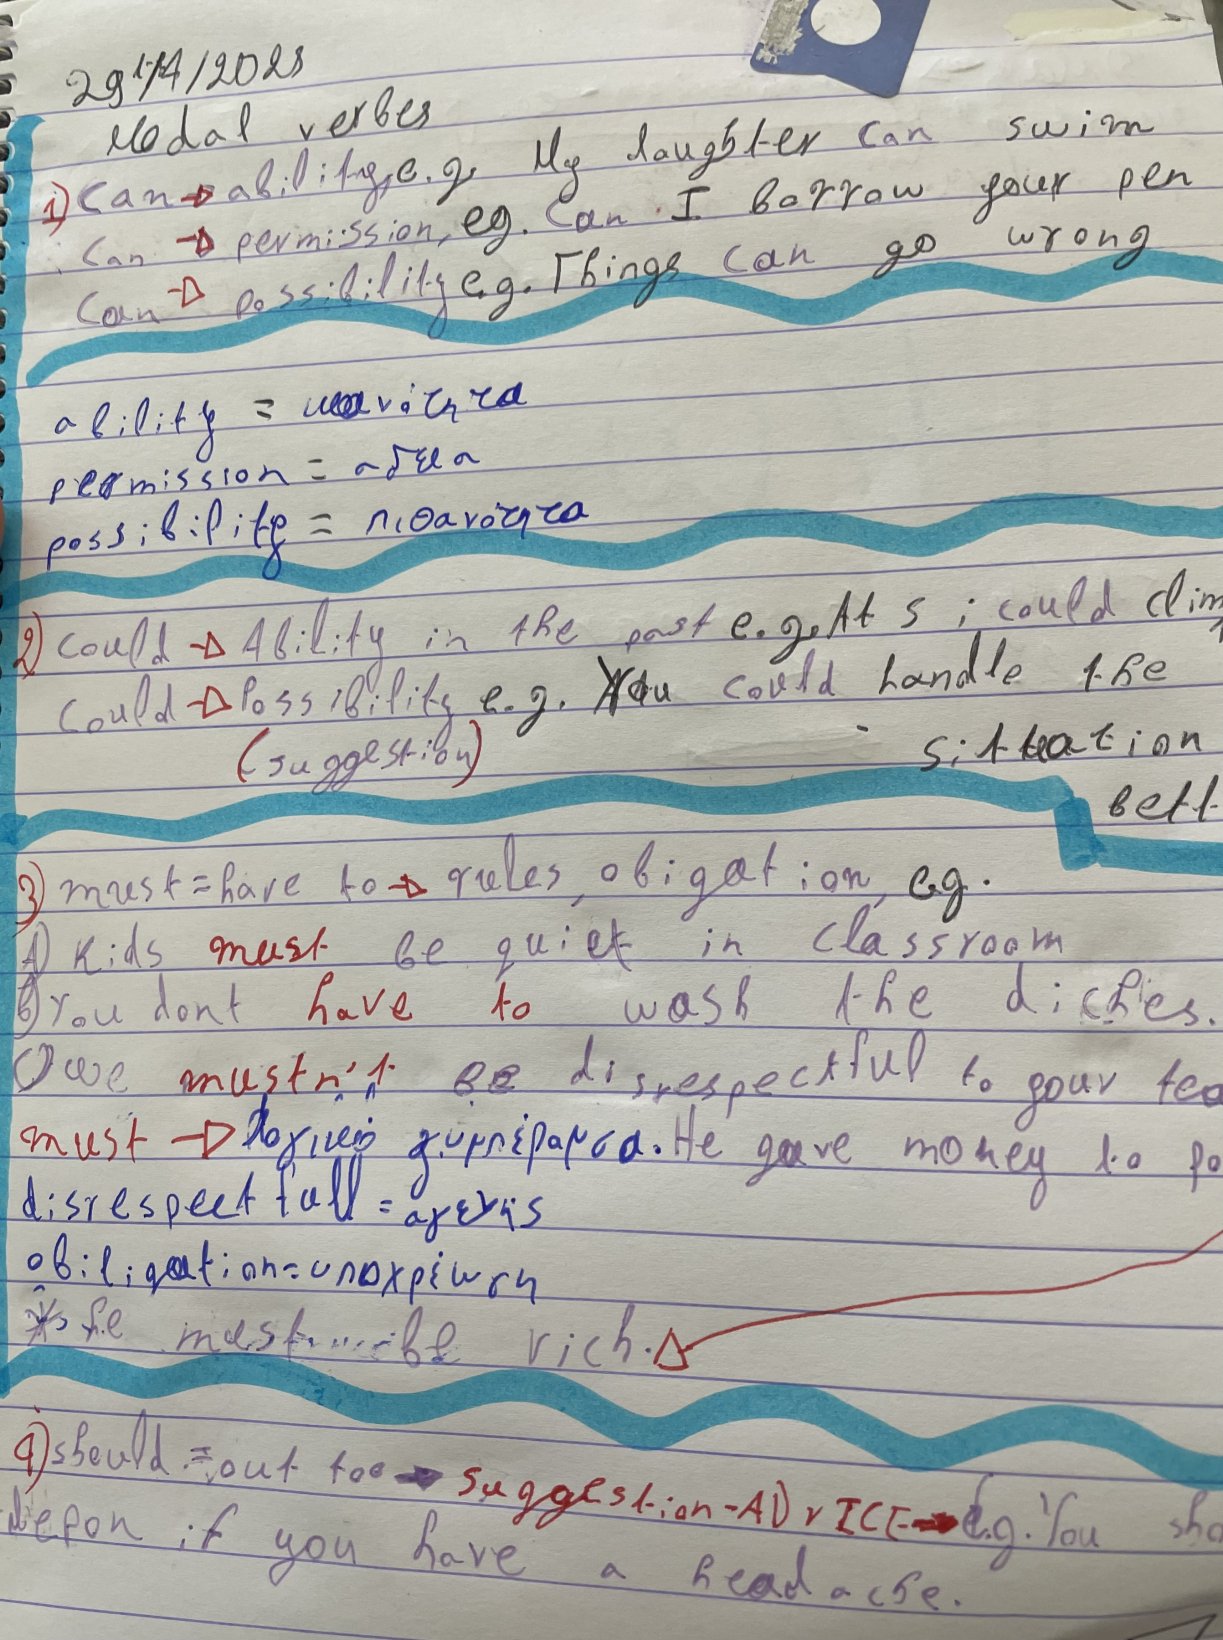 Modal verbes
1) Can → ability, e.g. My daughter can swim
Can → permission, eg. Can I borrow your pen
Can → possibility e.g. Things can go wrong
ability = ικανότητα
permission = αδεια
possibility = πιθανότητα
2) Could → Ability in the past e.g. At 5 i could clim
Could → Possibility e.g. You could handle the
(suggestion)
situation
bett
3) must = have to → rules, obigation, e.g.
A) Kids must be quiet in classroom
B) You dont have to wash the diches.
C) we mustn't be disrespectful to your tea
must → λογικό συμπέρασμα. He gave money to po
disrespectfull = αγενής
obiligation = υποχρέωση
he must be rich.
4) should = out too → suggestion - ADvICE → e.g. You sho
depon if you have a headache.